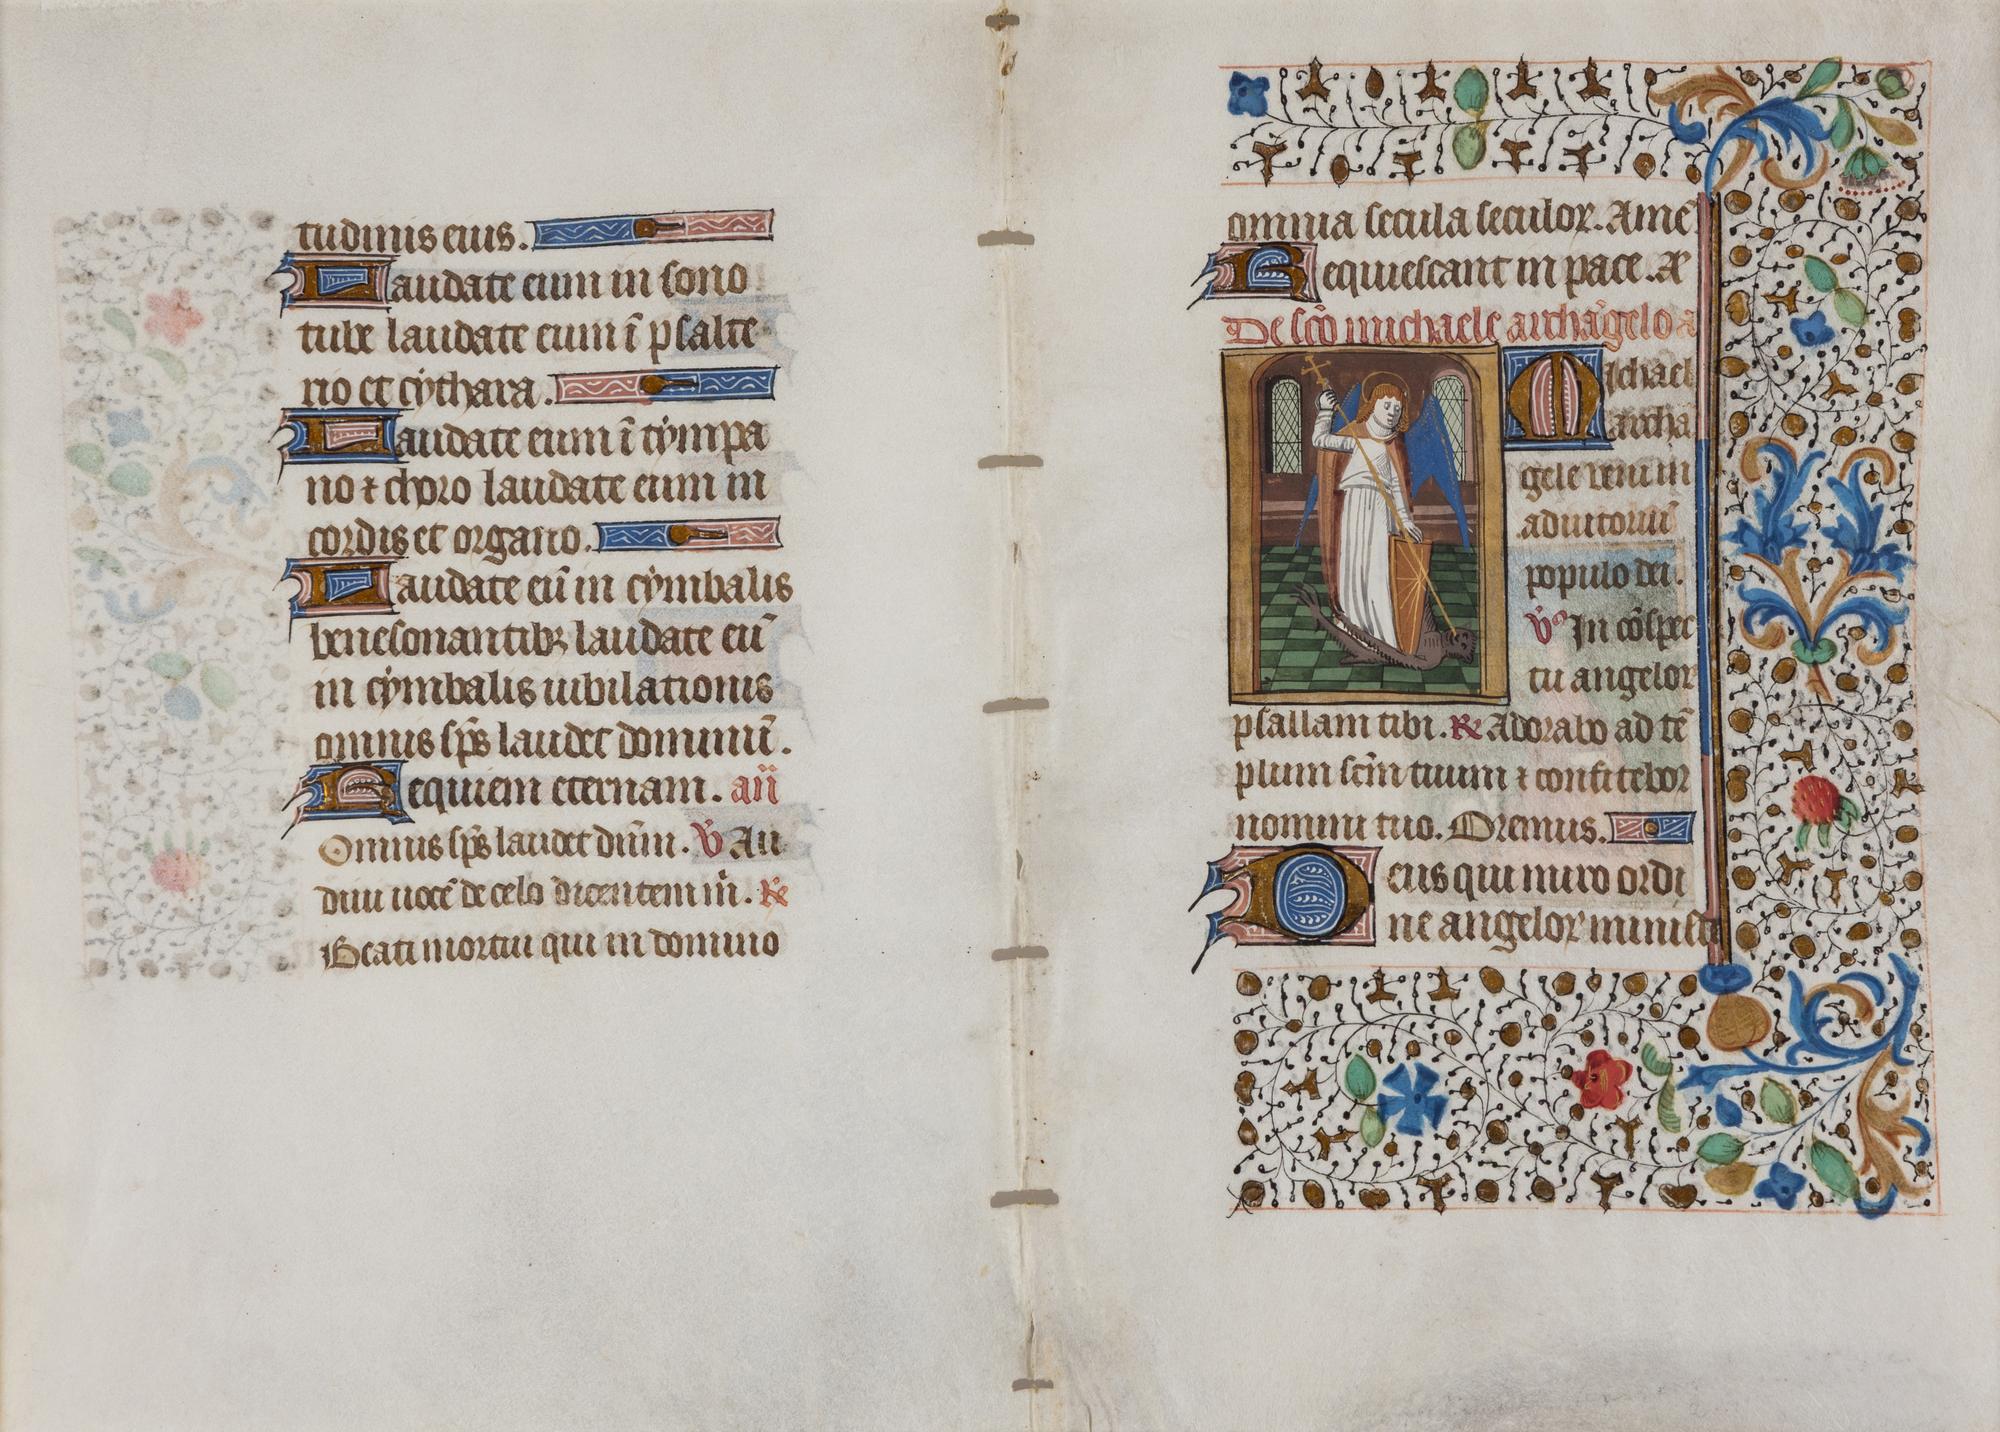 tudinis eius.
Laudate eum in sono
tube laudate eum ī psalte
rio et cythara.
Laudate eum ī tympa
no ⁊ choro laudate eum in
cordis et organo.
Laudate eū in cymbalis
benesonantibꝫ laudate eū
in cymbalis iubilationis
omnis sp̄s laudet dominū.
Requiem eternam. añ
Omnis sp̄s laudet dn̄m. ℣ Au
diui uocē de celo dicentem m̄. ℟
Beati mortui qui in domino
omnia secula seculoꝝ. Amē
Requiescant in pace. A
De scō michaele archāgelo a
Michael
archa
gele veni in
adiutoriū
populo dei.
℣ In cōspec
tu angeloꝝ
psallam tibi. ℟ Adorabo ad tē
plum scm̄ tuum ⁊ confitebor
nomini tuo. Oremus.
Deus qui miro ordi
ne angeloꝝ minist